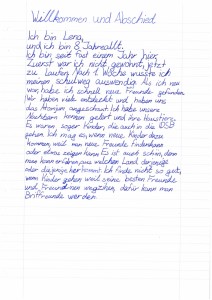 Willkommen und Abschied
Ich bin Lena,
und ich bin 8 Jahre alt.
Ich bin seit fast einem Jahr hier.
Zuerst war ich nicht gewöhnt, jetzt
zu laufen. Nach 1 Woche wusste ich
meinen schulweg auswendig. Als ich neu
war, habe ich schnell neue Freunde gefunden.
Wir haben viele entdeckt und haben uns
das angeschaut. Ich habe unsere
Nachbarn kennen gelernt und ihre Haustiere.
Es waren sogar Kinder, die auch in die IDSB
gehen. Ich mag es, wenn neue Kinder dazu
kommen, weil man neue Freunde finden kann
oder etwas zeigen kann. Es ist auch schön, denn
man kann erfahren, aus welchem Land derjenige
oder diejenige her kommt. Ich finde nicht so gut,
wenn Kinder gehen weil seine besten Freunde
und Freundinnen wegziehen, dafür kann man
Brieffreunde werden.